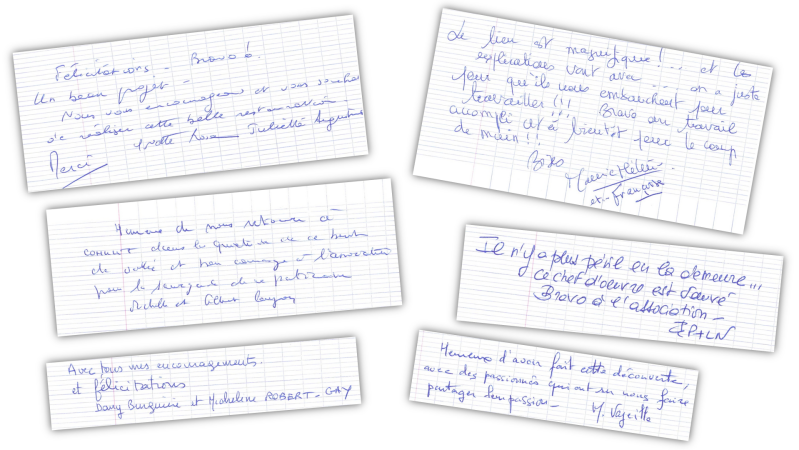 Félicitations - Bravo !
Un beau projet -
Nous vous encourageons et vous souhaitons
de réaliser cette belle restauration -
Merci Yvette Juliette Augustin
Heureux de nous retrouver à
de et bon courage à l'association
pour la sauvegarde de ce patrimoine
et Gilbert
Avec tous mes encouragements.
et félicitations
Dany et Micheline ROBERT-GAY
Le lieu est magnifique !... et les
explications vont avec ... on a juste
peur qu'ils nous embauchent pour
travailler !!! Bravo au travail
accompli et à bientôt pour le coup
de main !!
Marie Hélène
et Françoise
Il n'y a plus péril en la demeure...
ce chef d'oeuvre est sauvé
Bravo à l'association -
EP+LN
Heureux d'avoir fait cette découverte,
avec des passionnés qui ont su nous faire
partager leur passion -
M.